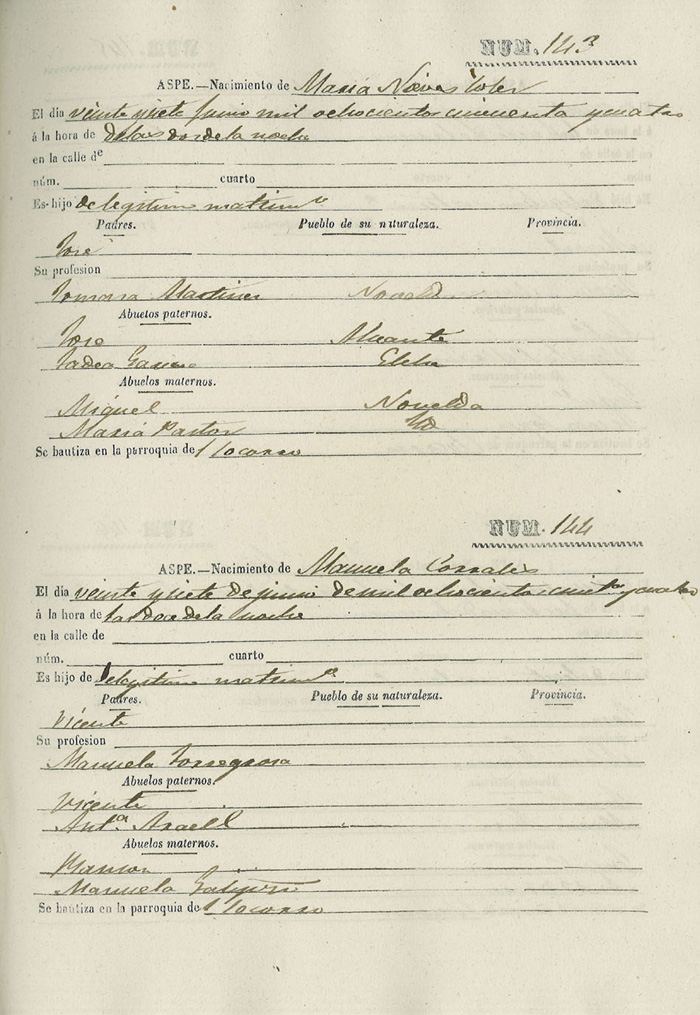 NUM. 143
ASPE.—Nacimiento de Maria Nieves Soler
El dia veinte y siete Junio mil ochocientos cincuenta y cuatro
á la hora de de las dos de la noche
en la calle de
núm. cuarto
Es hijo de legitimo matrimo
Padres. Pueblo de su naturaleza. Provincia.
Jose
Su profesion
Tomasa Martinez Novelda
Abuelos paternos.
Jose Alicante
Tadea Elche
Abuelos maternos.
Miguel Novelda
Maria Pastor Id
Se bautiza en la parroquia de Socorro
NUM. 144
ASPE.—Nacimiento de Manuela Corrales
El dia veinte y siete de junio de mil ochocientos cincta y cuatro
á la hora de las doce de la noche
en la calle de
núm. cuarto
Es hijo de legitimo matrimo
Padres. Pueblo de su naturaleza. Provincia.
Vicente
Su profesion
Manuela Torregrosa
Abuelos paternos.
Vicente
Anta
Abuelos maternos.
Ramon
Manuela
Se bautiza en la parroquia de Socorro